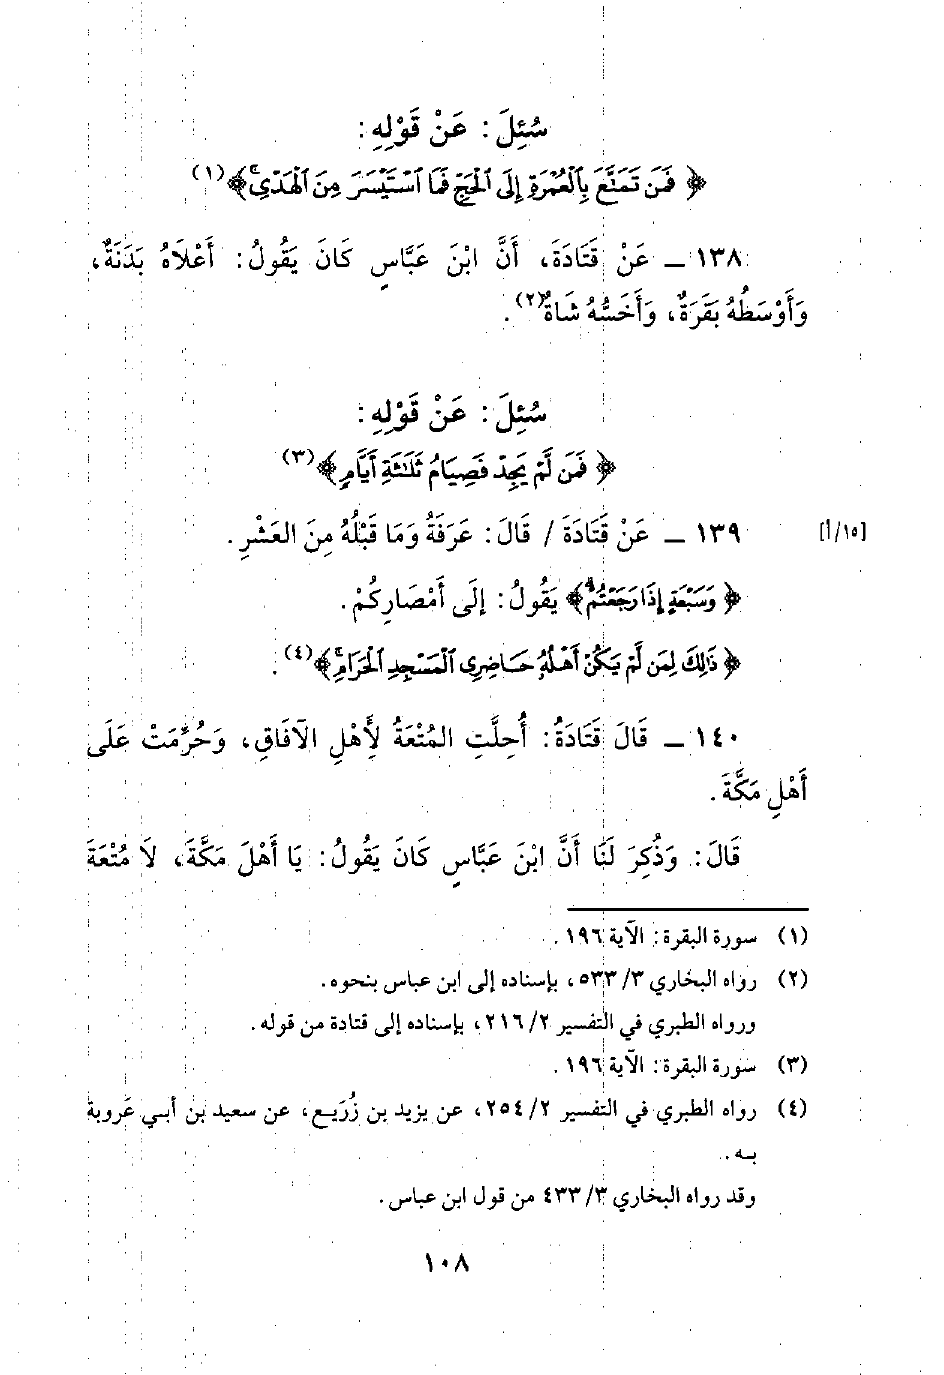 سُئِلَ : عَنْ قَوْلِهِ :
﴿ فَمَن تَمَتَّعَ بِٱلْعُمْرَةِ إِلَى ٱلْحَجِّ فَمَا ٱسْتَيْسَرَ مِنَ ٱلْهَدْىِ ﴾(١)
١٣٨ ــ عَنْ قَتَادَةَ، أَنَّ ابْنَ عَبَّاسٍ كَانَ يَقُولُ: أَعْلَاهُ بَدَنَةٌ،
وَأَوْسَطُهُ بَقَرَةٌ، وَأَخَسُّهُ شَاةٌ(٢).
سُئِلَ : عَنْ قَوْلِهِ :
﴿ فَمَن لَّمْ يَجِدْ فَصِيَامُ ثَلَـٰثَةِ أَيَّامٍ ﴾(٣)
١٣٩ ــ عَنْ قَتَادَةَ / قَالَ: عَرَفَةُ وَمَا قَبْلُهُ مِنَ العَشْرِ. [١٥/أ]
﴿ وَسَبْعَةٍ إِذَا رَجَعْتُمْ ﴾ يَقُولُ: إِلَى أَمْصَارِكُمْ.
﴿ ذَٰلِكَ لِمَن لَّمْ يَكُنْ أَهْلُهُۥ حَاضِرِى ٱلْمَسْجِدِ ٱلْحَرَامِ ﴾(٤).
١٤٠ ــ قَالَ قَتَادَةُ: أُحِلَّتِ المُتْعَةُ لِأَهْلِ الآفَاقِ، وَحُرِّمَتْ عَلَى
أَهْلِ مَكَّةَ.
قَالَ: وَذُكِرَ لَنَا أَنَّ ابْنَ عَبَّاسٍ كَانَ يَقُولُ: يَا أَهْلَ مَكَّةَ، لَا مُتْعَةَ
(١) سورة البقرة: الآية ١٩٦.
(٢) رواه البخاري ٣/ ٥٣٣، بإسناده إلى ابن عباس بنحوه.
ورواه الطبري في التفسير ٢/ ٢١٦، بإسناده إلى قتادة من قوله.
(٣) سورة البقرة: الآية ١٩٦.
(٤) رواه الطبري في التفسير ٢/ ٢٥٤، عن يزيد بن زُرَيع، عن سعيد بن أبي عَروبة
به.
وقد رواه البخاري ٣/ ٤٣٣ من قول ابن عباس.
١٠٨